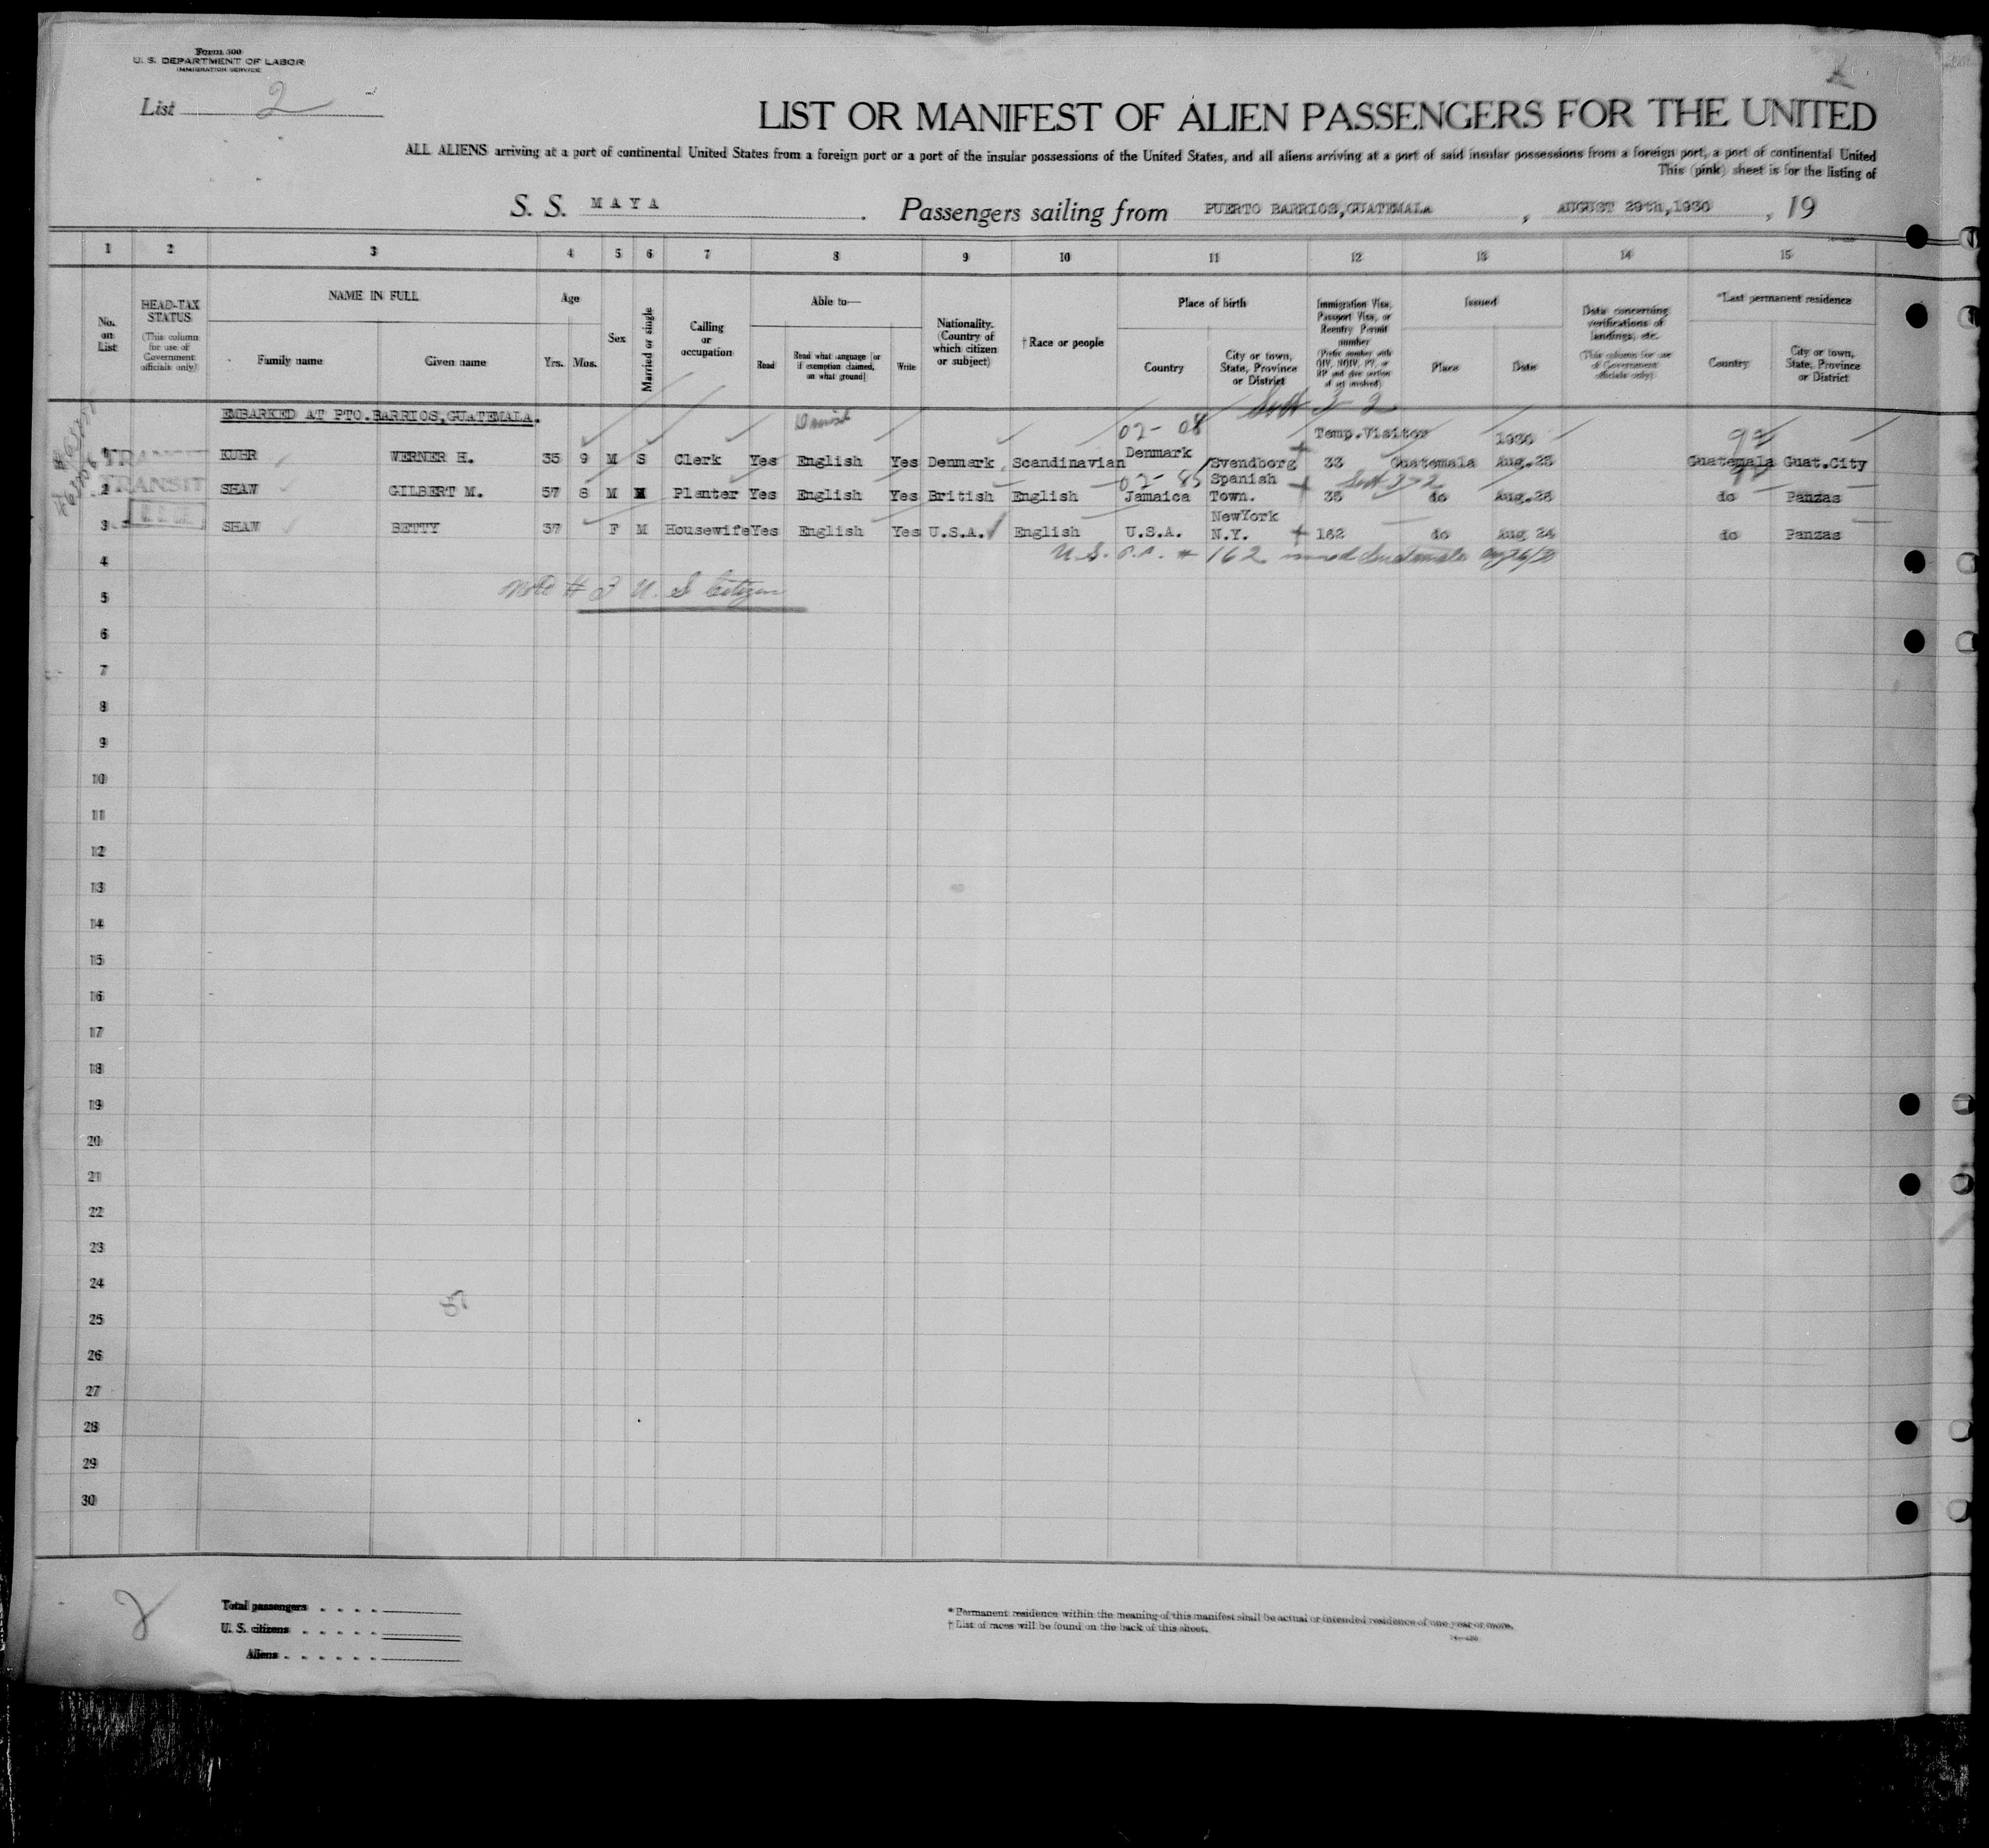 Form 500
U. S. DEPARTMENT OF LABOR
IMMIGRATION SERVICE
List 2
LIST OR MANIFEST OF ALIEN PASSENGERS FOR THE UNITED
ALL ALIENS arriving at a port of continental United States from a foreign port or a port of the insular possessions of the United States, and all aliens arriving at a port of said insular possessions from a foreign port, a port of continental United
This (pink) sheet is for the listing of
S. S. MAYA . Passengers sailing from PUERTO BARRIOS, GUATEMALA , AUGUST 29th, 1930 , 19
1 2 3 4 5 6 7 8 9 10 11 12 13 14 15
No. on List
HEAD-TAX STATUS (This column for use of Government officials only)
NAME IN FULL
Family name Given name
Age
Yrs. Mos.
Sex
Married or single
Calling or occupation
Able to—
Read Read what language [or if exemption claimed, on what ground] Write
Nationality. (Country of which citizen or subject)
†Race or people
Place of birth
Country City or town, State, Province or District
Immigration Visa, Passport Visa, or Reentry Permit number (Prefix number with QIV, NQIV, PV, or RP and give section of act involved)
Issued
Place Date
Data concerning verifications of landings, etc. (This column for use of Government officials only)
*Last permanent residence
Country City or town, State, Province or District
EMBARKED AT PTO. BARRIOS, GUATEMALA.
Danish 02-08 3-2 Temp. Visitor 1930 99
1 TRANSIT KUHR WERNER H. 35 9 M S Clerk Yes English Yes Denmark Scandinavian Denmark Svendborg 33 Guatemala Aug. 23 Guatemala Guat. City
02-85 3-2
2 TRANSIT SHAW GILBERT M. 57 8 M M Planter Yes English Yes British English Jamaica Spanish Town. 35 do Aug. 28 do Panzas
3 SHAW BETTY 37 F M Housewife Yes English Yes U.S.A. English U.S.A. NewYork N.Y. 162 do Aug 24 do Panzas
U. S. P.P. # 162 issued Guatemala
4
Note # 3 U. S Citizen
5
6
7
8
9
10
11
12
13
14
15
16
17
18
19
20
21
22
23
24
25
26
27
28
29
30
2
Total passengers
U. S. citizens
Aliens
* Permanent residence within the meaning of this manifest shall be actual or intended residence of one year or more.
† List of races will be found on the back of this sheet.